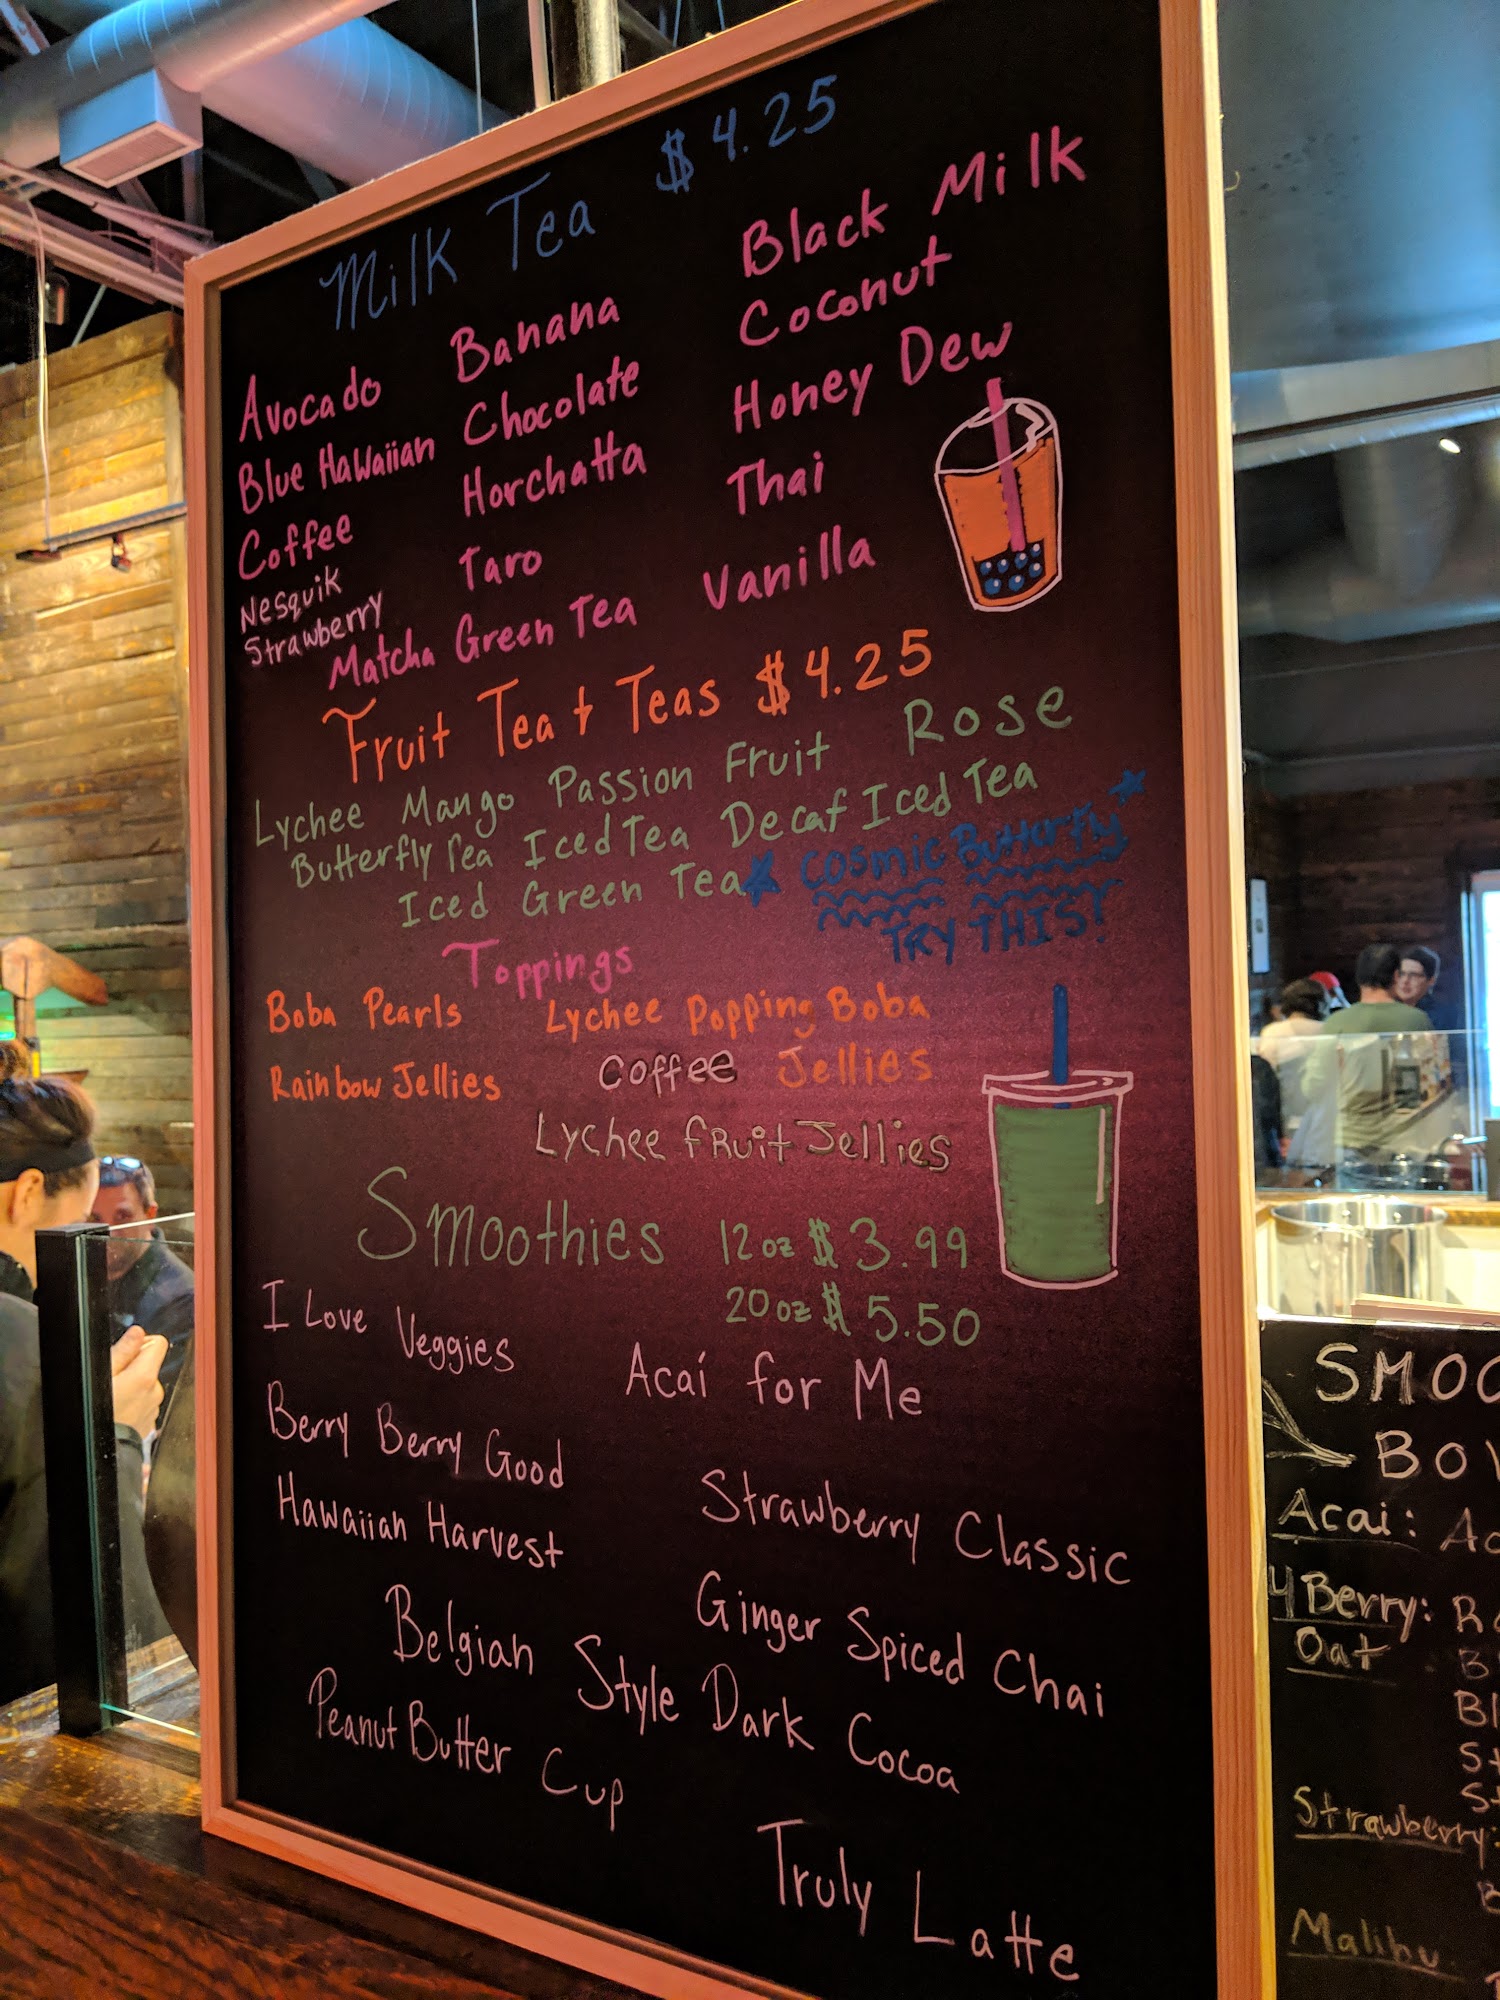 Milk Tea $4.25
Avocado Banana Black Milk
Blue Hawaiian Chocolate Coconut
Coffee Horchatta Honey Dew
Nesquik Strawberry Taro Thai
Matcha Green Tea Vanilla
Fruit Tea + Teas $4.25
Lychee Mango Passion Fruit Rose
Butterfly Tea Iced Tea Decaf Iced Tea
Iced Green Tea Cosmic Butterfly
TRY THIS!
Toppings
Boba Pearls Lychee Popping Boba
Rainbow Jellies Coffee Jellies
Lychee fruit Jellies
Smoothies 12oz $3.99
20oz $5.50
I Love Veggies Acaí for Me
Berry Berry Good Strawberry Classic
Hawaiian Harvest Ginger Spiced Chai
Belgian Style Dark Cocoa
Peanut Butter Cup
Truly Latte
SMOO
BO
Acai:
4 Berry:
Oat
Strawberry:
Malibu